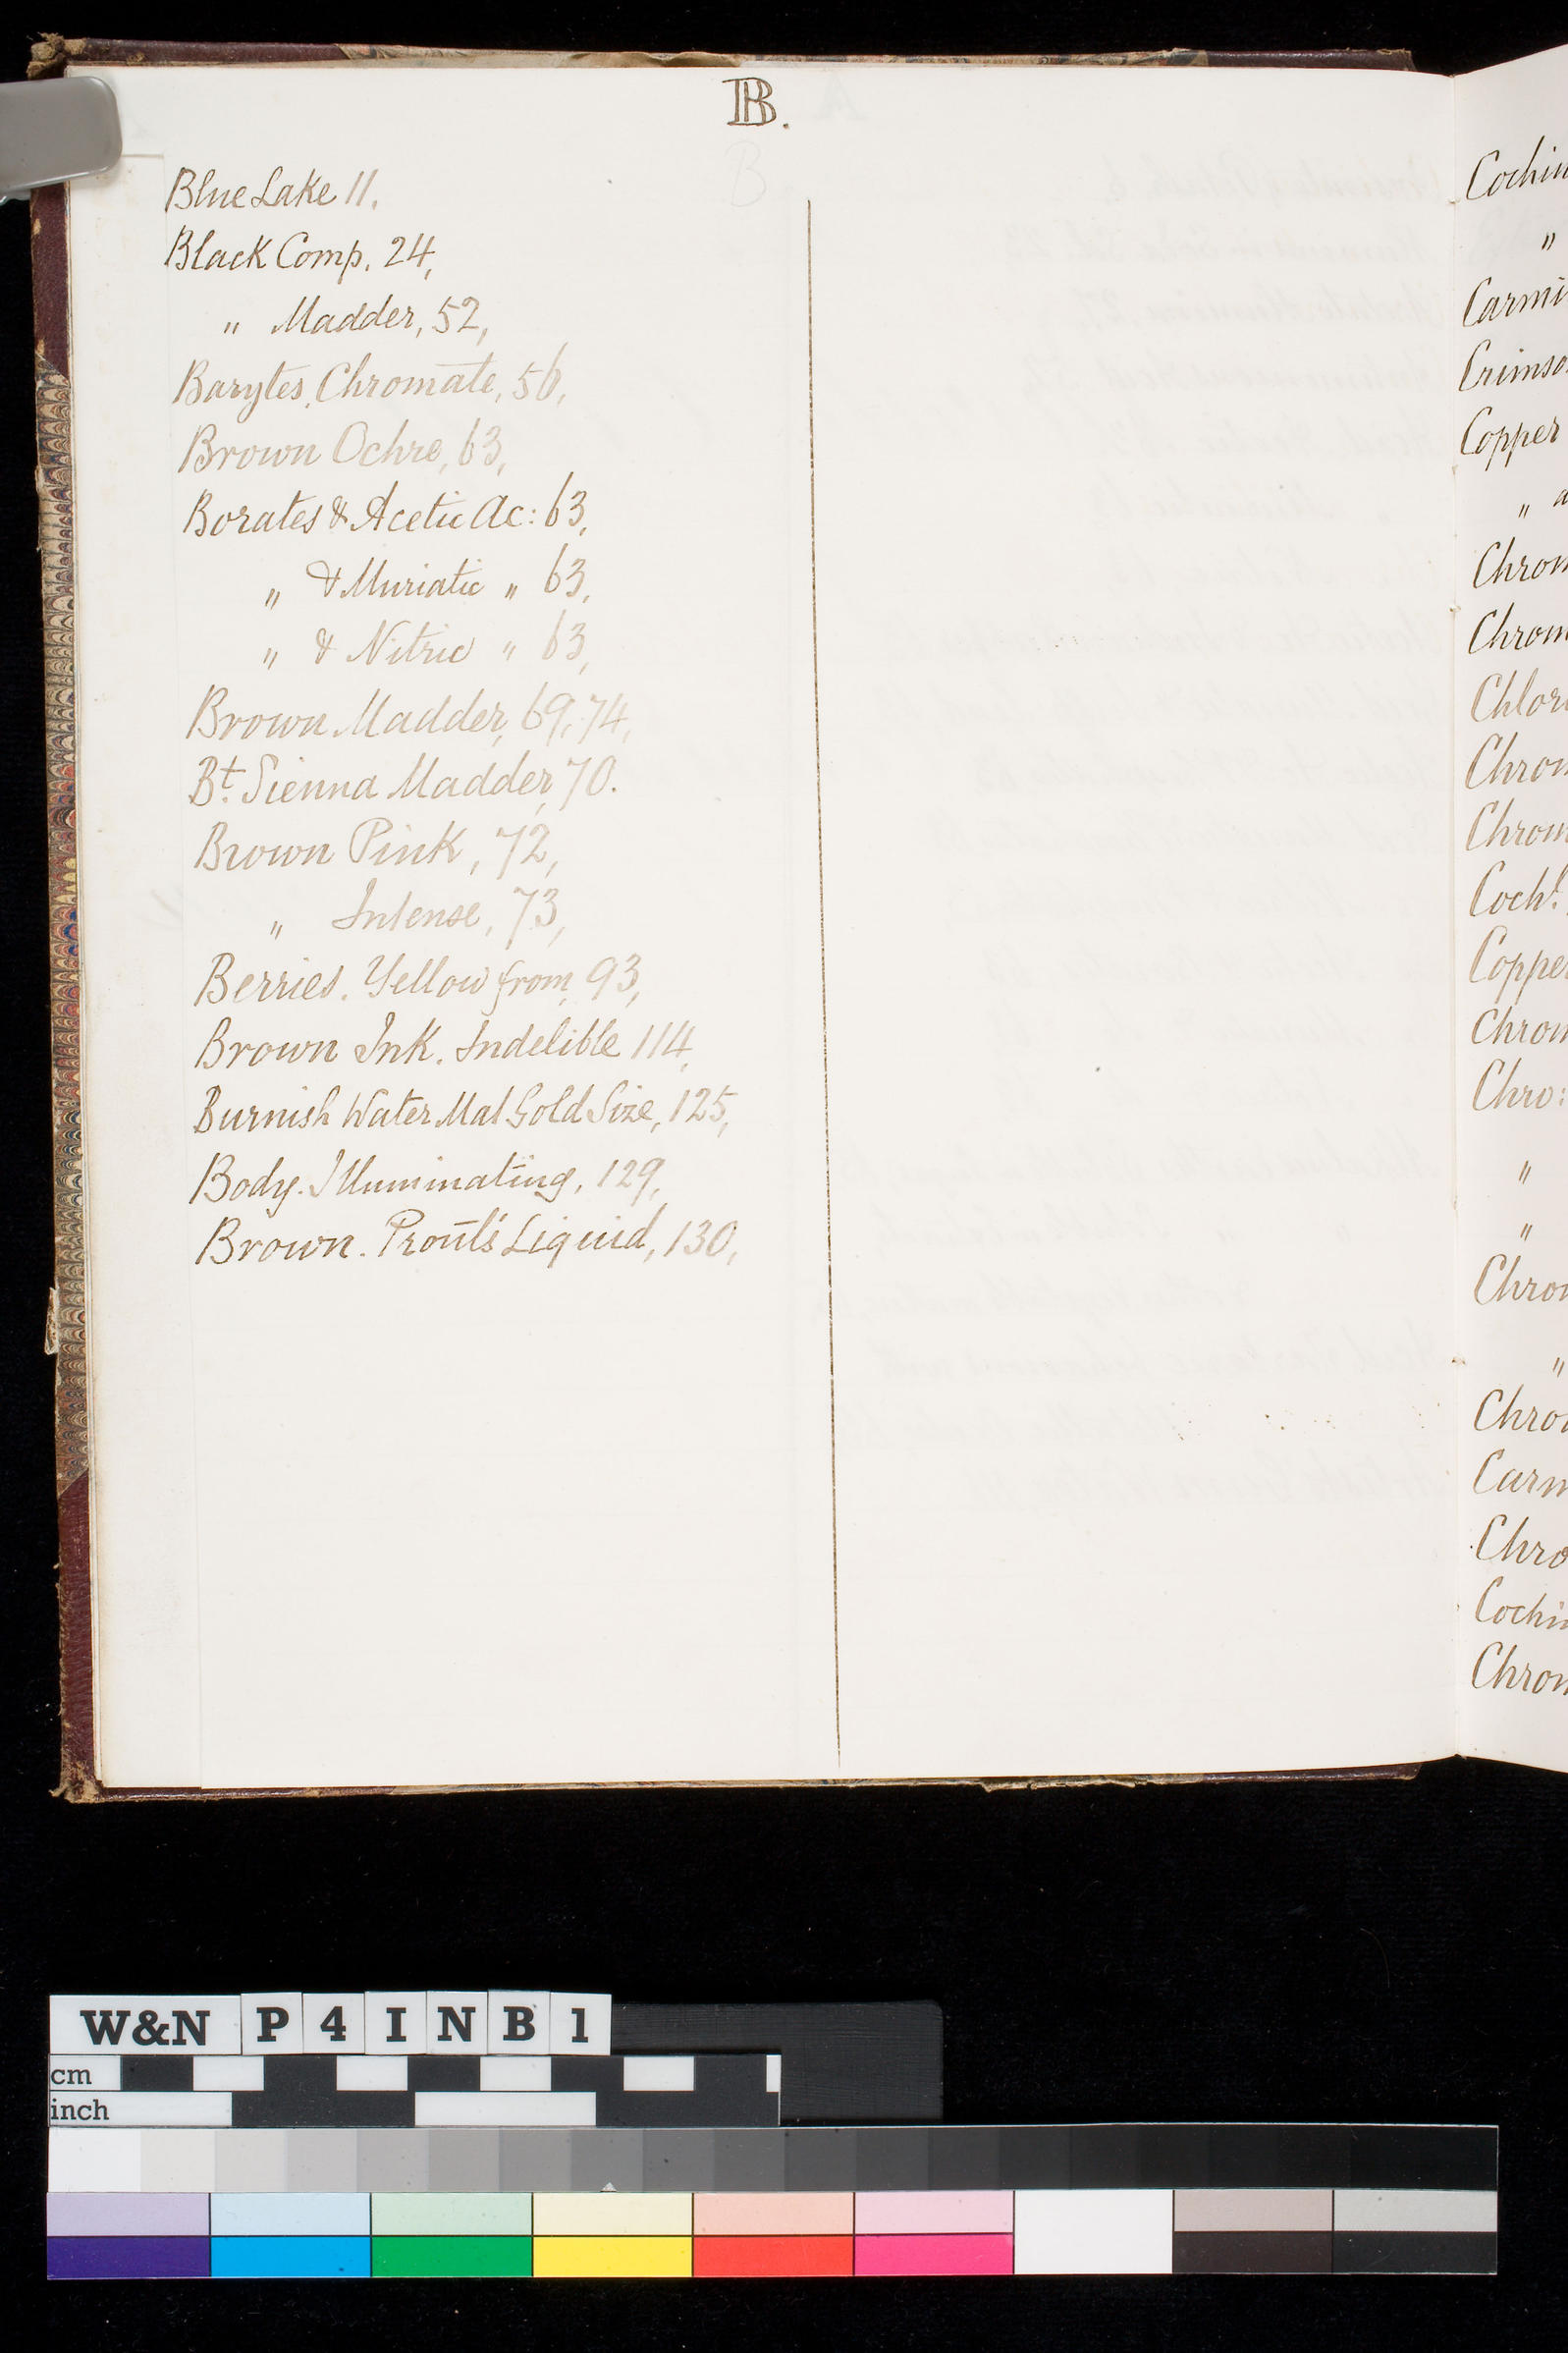 B.
B
Blue Lake 11.
Black Comp. 24,
" Madder, 52,
Barytes, Chromate, 56,
Brown Ochre, 63,
Borates & Acetic Ac: 63,
" & Muriatic " 63,
" & Nitric " 63,
Brown Madder, 69, 74,
Bt. Sienna Madder, 70.
Brown Pink, 72,
" Intense, 73,
Berries. Yellow from, 93,
Brown Ink. Indelible 114,
Burnish Water Mat Gold Size, 125,
Body. Illuminating, 129,
Brown. Prout's Liquid, 130,
Cochin
"
Carmi
Crimso
Copper
" a
Chrom
Chrom
Chlor
Chrom
Chrom
Cochl.
Copper
Chrom
Chro:
"
"
Chrom
"
Chro
Carm
Chro
Cochi
Chrom
W&N P4INB1
cm
inch